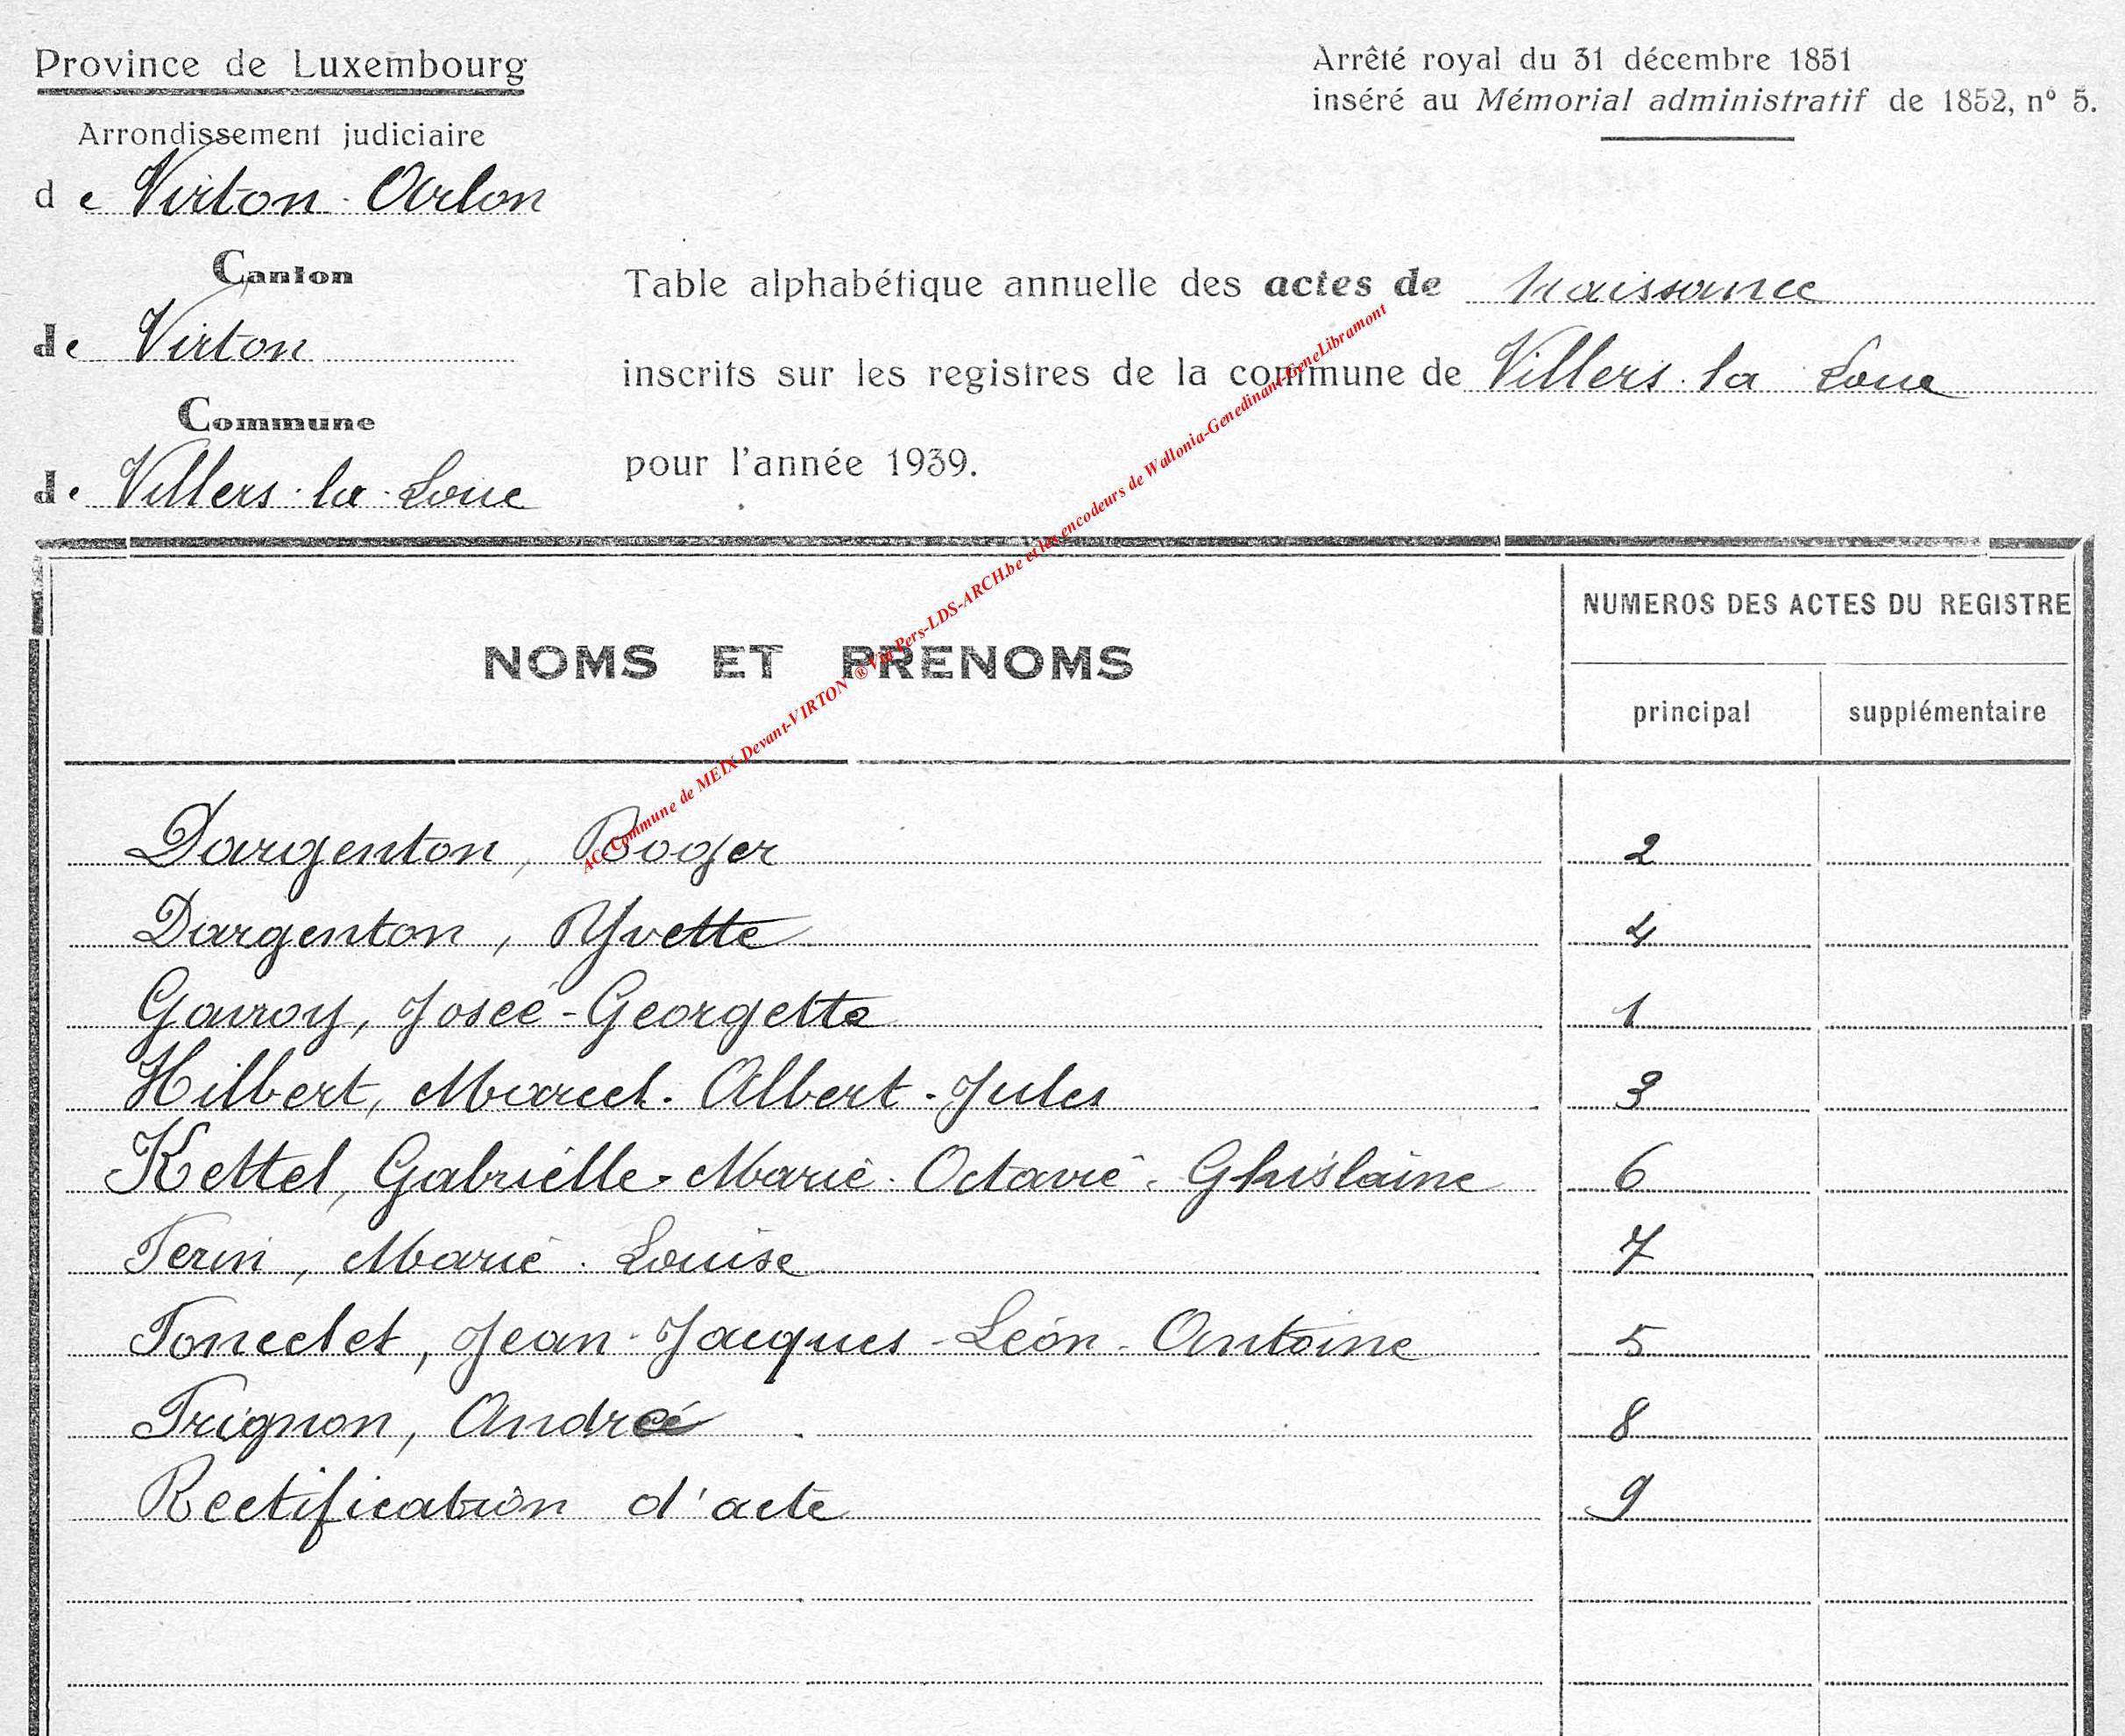 Province de Luxembourg
Arrondissement judiciaire
de Virton-Arlon
Canton
de Virton
Commune
de Villers-la-Loue
Arrêté royal du 31 décembre 1851
inséré au Mémorial administratif de 1852, n° 5.
Table alphabétique annuelle des actes de naissance
inscrits sur les registres de la commune de Villers-la Loue
pour l'année 1939.
NOMS ET PRENOMS
NUMEROS DES ACTES DU REGISTRE
principal supplémentaire
Dargenton, Roger 2
Dargenton, Yvette 4
Gavroy, Joseé-Georgette 1
Hilbert, Marcel-Albert-Jules 3
Kettel, Gabrielle-Marie-Octavie-Ghislaine 6
Marie-Louise 7
Poncelet, Jean-Jacques-Léon-Antoine 5
Trignon, André 8
Rectification d'acte 9
AC- Commune de MEIX-Devant-VIRTON ® Via Pers-LDS-ARCH.be et les encodeurs de Wallonia-Genedinant-GeneLibramont